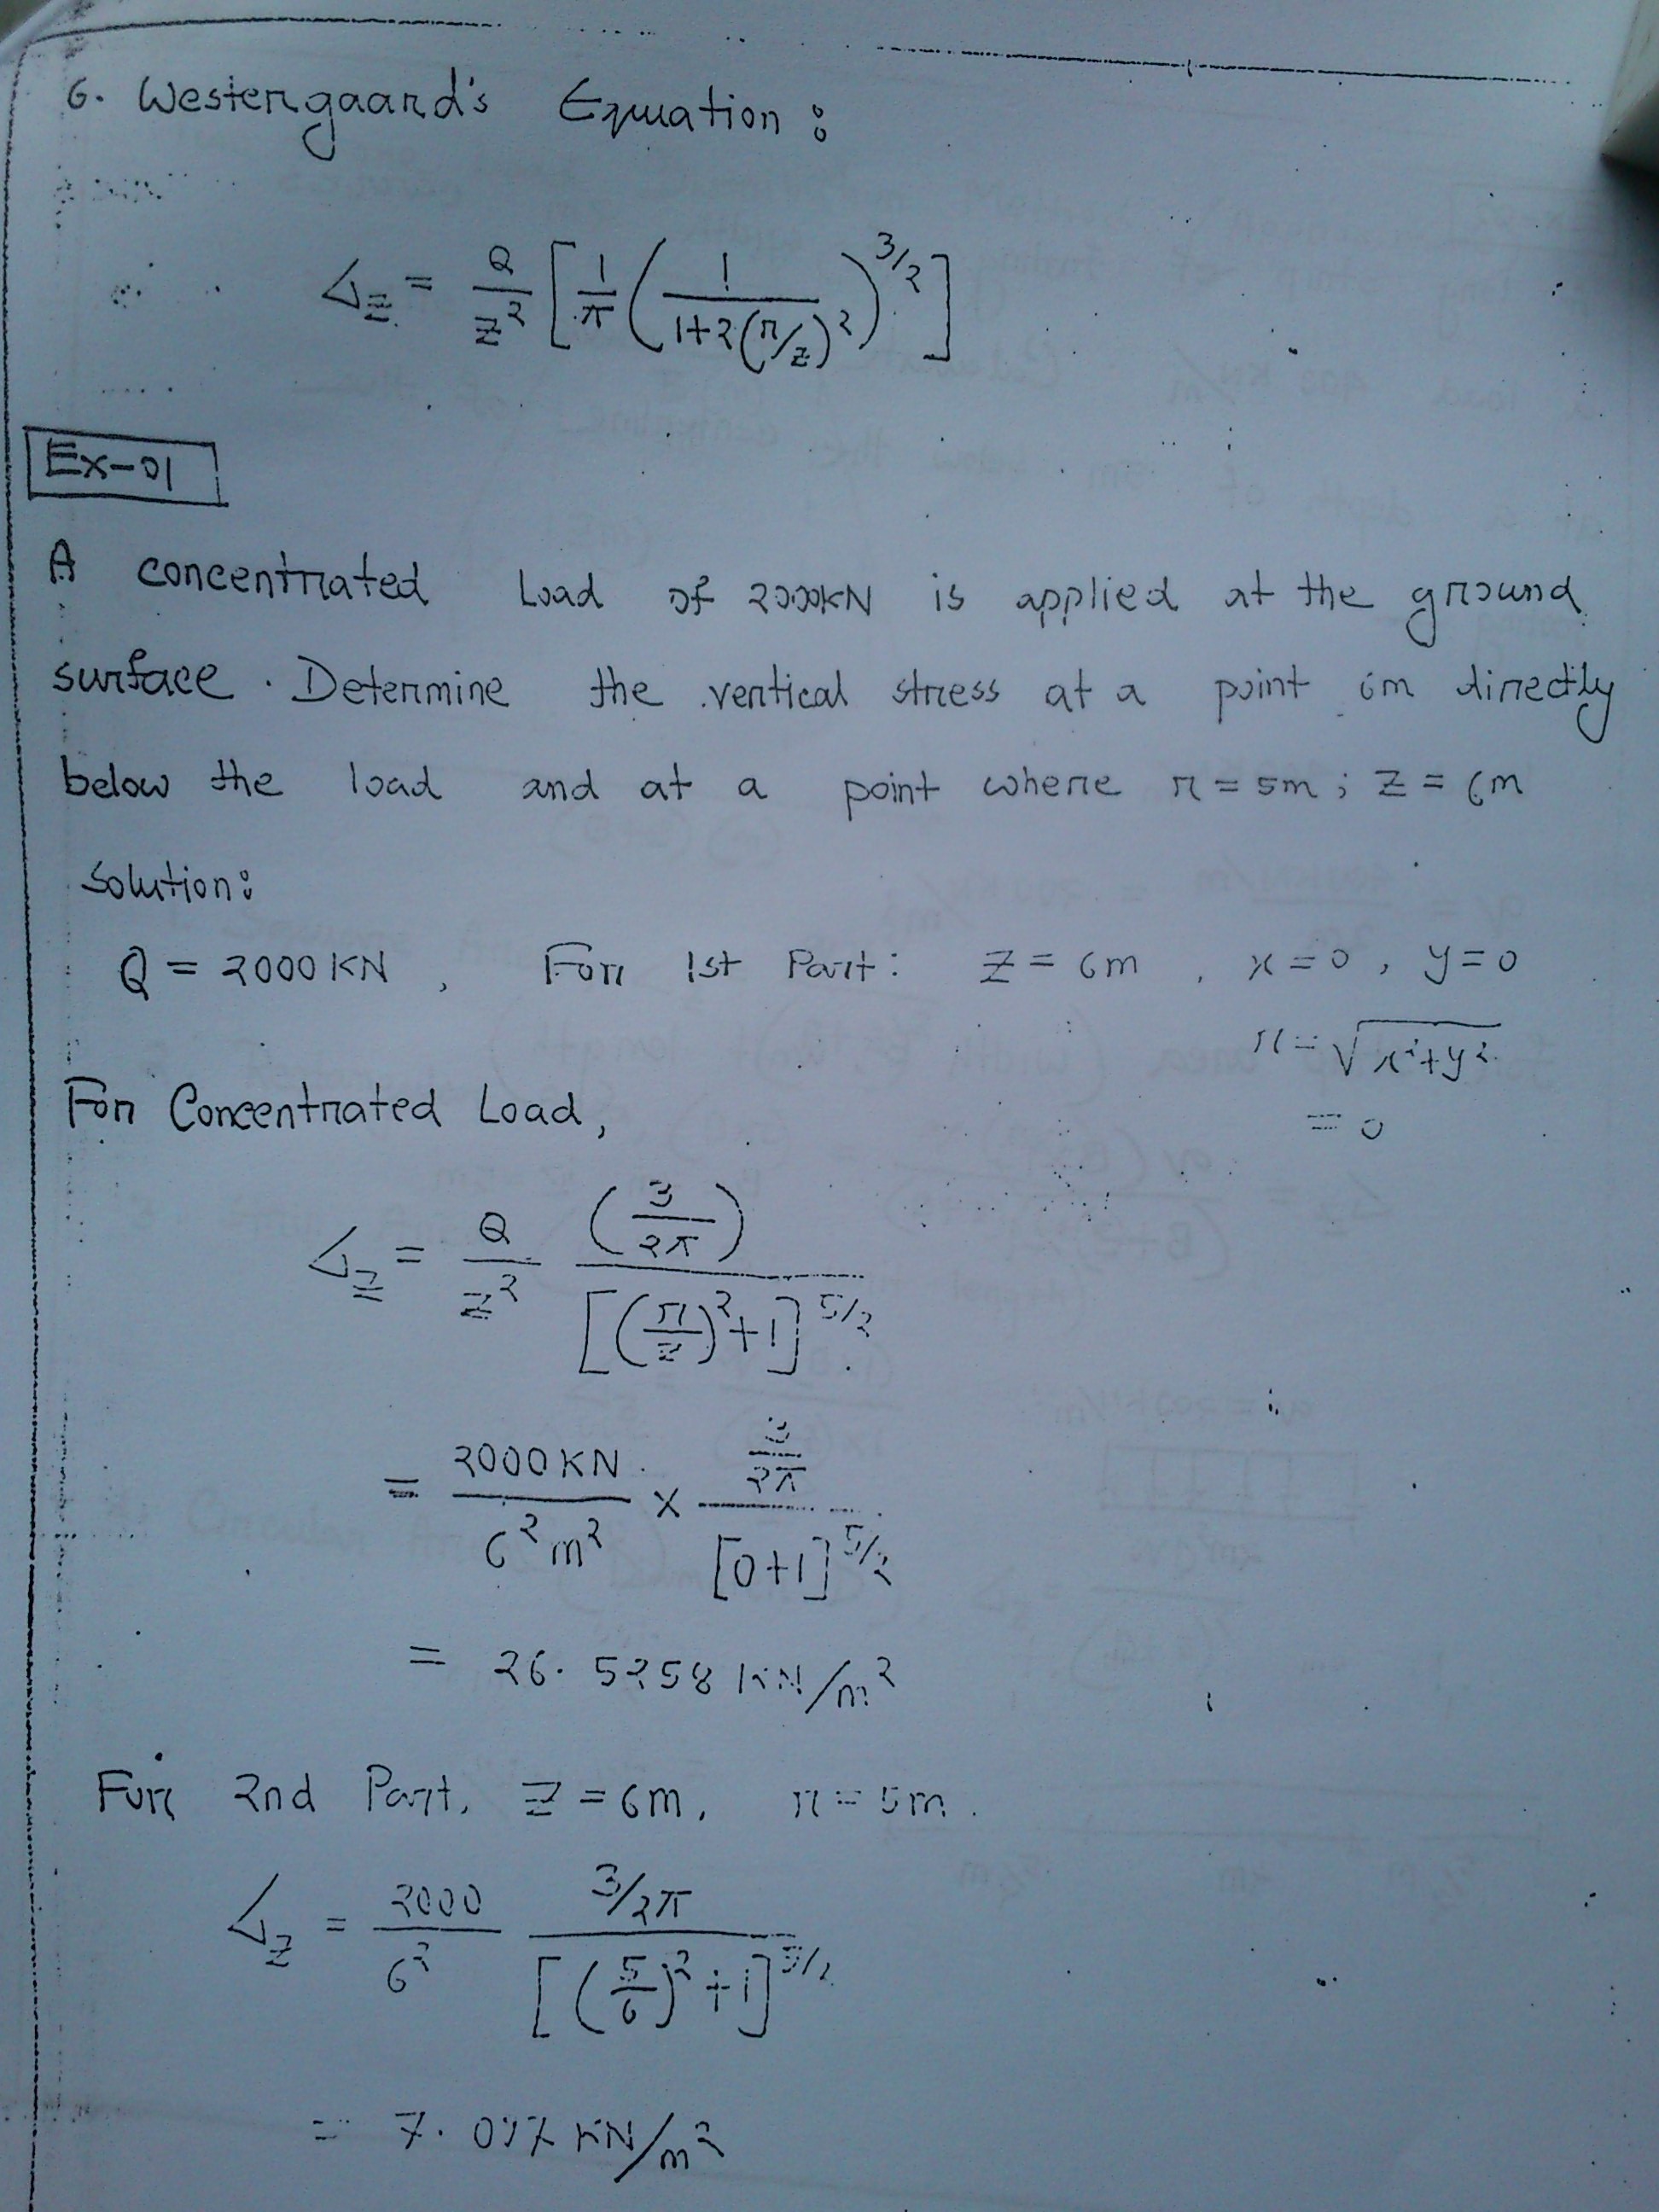 6. Westergaard's Equation :
Δz = Q/z² [ 1/π ( 1/(1+2(r/z)²) )^3/2 ]
Ex-01
A concentrated Load of 2000KN is applied at the ground
surface. Determine the vertical stress at a point 6m directly
below the load and at a point where r = 5m ; z = 6m
Solution:
Q = 2000 KN , For 1st Part: z = 6m , x=0 , y=0
r = √(x²+y²)
= 0
For Concentrated Load,
Δz = Q/z² (3/2π) / [(r/z)²+1]^5/2
= 2000KN/6²m² × (3/2π) / [0+1]^5/2
= 26.5258 KN/m²
For 2nd Part, z = 6m, r = 5m.
Δz = 2000/6² (3/2π) / [(5/6)²+1]^5/2
= KN/m²